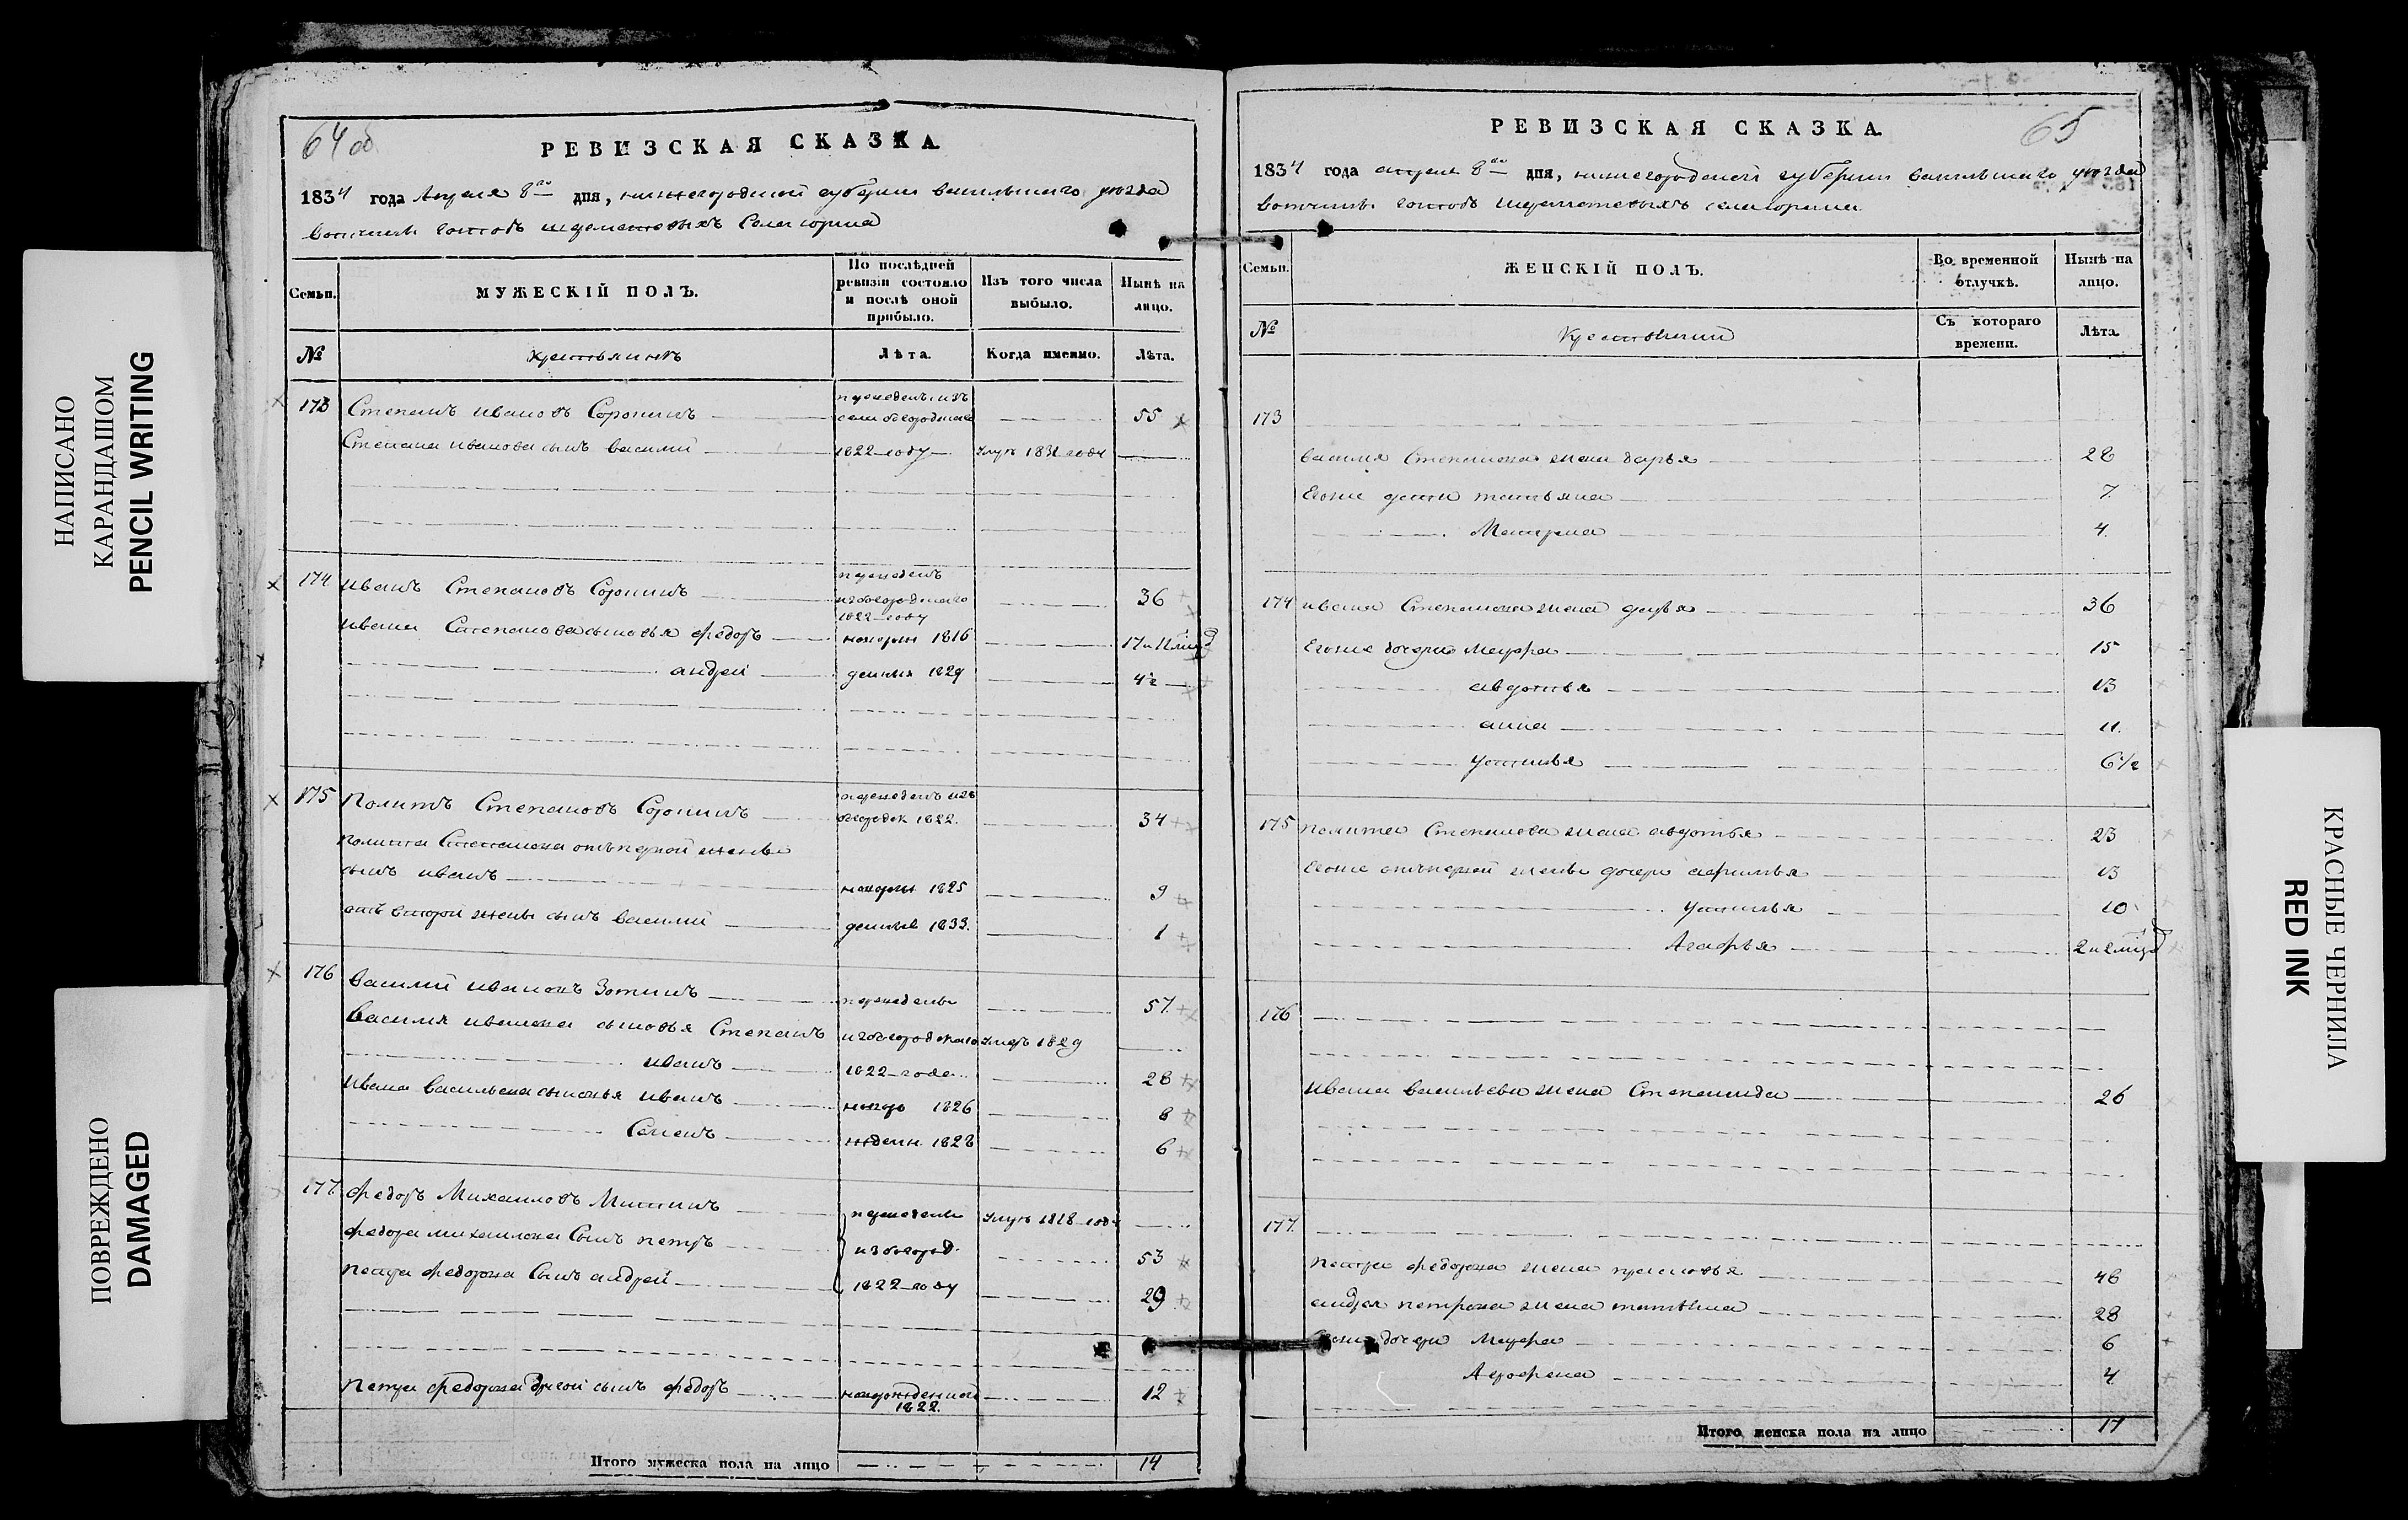 НАПИСАНО
КАРАНДАШОМ
PENCIL WRITING
ПОВРЕЖДЕНО
DAMAGED
64 об
РЕВИЗСКАЯ СКАЗКА
1834 года Апреля 8го дня, нижегородской губернии васильскаго уезда
вотчины господъ шереметевыхъ села
Семьи.
МУЖЕСКІЙ ПОЛЪ.
По послѣдней ревизіи состояло и послѣ оной прибыло.
Изъ того числа выбыло.
Нынѣ на лицо.
№
крестьянъ
Лѣта.
Когда именно.
Лѣта.
173 Степанъ ивановъ Соронинъ переведенъ изъ 55
Степана иванова сынъ василий 1822 году умре 1831 году
174 иванъ Степановъ Соронинъ переведенъ 36
1822 году
ивана Степанова сыновья федоръ 1816 17 и 11 мцд
андрей 1829 4½
175 Политъ Степановъ Соронинъ переведенъ изъ
1822. 34
полита Степанова отъ первой жены
сынъ иванъ новорож 1825 9
отъ второй жены сынъ василий денные 1833. 1
176 василий ивановъ Зотинъ переведены 57
василия иванова сыновья Степанъ умеръ 1829
иванъ 1822 года 28
ивана васильева сыновья иванъ новоро 1826 8
Семенъ жденн. 1828 6
177 федоръ Михаиловъ Митинъ переведены умре 1818 году
федора михаилова Сынъ петръ 53
петра федорова Сынъ андрей 1822 году 29
петра федорова другой сынъ федоръ новорожденной 1822. 12
Итого мужеска пола на лицо 14
65
РЕВИЗСКАЯ СКАЗКА.
1834 года апреля 8го дня, нижегородской губернии васильскаго уезда
вотчины господъ шереметевыхъ села
Семьи.
ЖЕНСКІЙ ПОЛЪ.
Во временной отлучкѣ.
Нынѣ на лицо.
№
Съ котораго времени.
Лѣта.
173
василия Степанова жена дарья 28
Егоже дети татьяна 7.
Матрена 4.
174 ивана Степанова жена дарья 36
Егоже дочери мавра 15
авдотья 13
анна 11.
устинья 6½
175 полита Степанова жена авдотья 23
Егоже отъ первой жены дочери афимья 13
устинья 10
Агафья 2 и 2 мцд
176
ивана васильева жена Степанида 26
177.
петра федорова жена прасковья 46
андрея петрова жена татьяна 28
Егоже дочери Мавра 6
Аграфена 4
Итого женска пола на лицо 17
КРАСНЫЕ ЧЕРНИЛА
RED INK